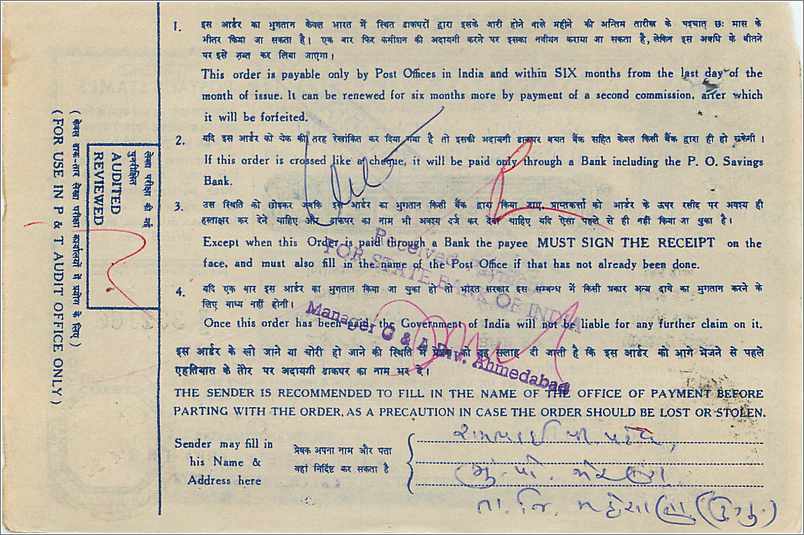 1. इस आर्डर का भुगतान केवल भारत में स्थित डाकघरों द्वारा इसके जारी होने वाले महीने की अन्तिम तारीख के पश्चात् छः मास के
भीतर किया जा सकता है। एक बार फिर कमीशन की अदायगी करने पर इसका नवीयन कराया जा सकता है, लेकिन इस अवधि के बीतने
पर इसे ज़ब्त कर लिया जाएगा।
This order is payable only by Post Offices in India and within SIX months from the last day of the
month of issue. It can be renewed for six months more by payment of a second commission, after which
it will be forfeited.
2. यदि इस आर्डर को चेक की तरह रेखांकित कर दिया गया है तो इसकी अदायगी डाकघर बचत बैंक सहित केवल किसी बैंक द्वारा ही हो सकेगी।
If this order is crossed like a cheque, it will be paid only through a Bank including the P. O. Savings
Bank.
3. उस स्थिति को छोड़कर जबकि इस आर्डर का भुगतान किसी बैंक द्वारा किया जाए, प्राप्तकर्त्ता को आर्डर के ऊपर रसीद पर अवश्य ही
हस्ताक्षर कर देने चाहिए और डाकघर का नाम भी अवश्य दर्ज कर देना चाहिए यदि ऐसा पहले से ही नहीं किया जा चुका है।
Except when this Order is paid through a Bank the payee MUST SIGN THE RECEIPT on the
face, and must also fill in the name of the Post Office if that has not already been done.
4. यदि एक बार इस आर्डर का भुगतान किया जा चुका हो तो भारत सरकार इस सम्बन्ध में किसी प्रकार अन्य दावे का भुगतान करने के
लिए बाध्य नहीं होगी।
Once this order has been paid, the Government of India will not be liable for any further claim on it.
इस आर्डर के खो जाने या चोरी हो जाने की स्थिति में प्रेषक को यह सलाह दी जाती है कि इस आर्डर को आगे भेजने से पहले
एहतियात के तौर पर अदायगी डाकघर का नाम भर दे।
THE SENDER IS RECOMMENDED TO FILL IN THE NAME OF THE OFFICE OF PAYMENT BEFORE
PARTING WITH THE ORDER, AS A PRECAUTION IN CASE THE ORDER SHOULD BE LOST OR STOLEN.
Sender may fill in
his Name &
Address here
प्रेषक अपना नाम और पता
यहां निर्दिष्ट कर सकता है
Received
FOR STATE BANK OF INDIA
Manager G & A Div. Ahmedabad
लेखा परीक्षा की गई
पुनरीक्षित
AUDITED
REVIEWED
( केवल डाक-तार लेखा परीक्षा कार्यालयों में प्रयोग के लिए )
( FOR USE IN P & T AUDIT OFFICE ONLY )